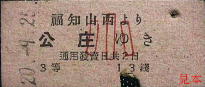 福知山西より
公庄ゆき
通用發賣日共2日
3等 13錢
20.-4.2
見本